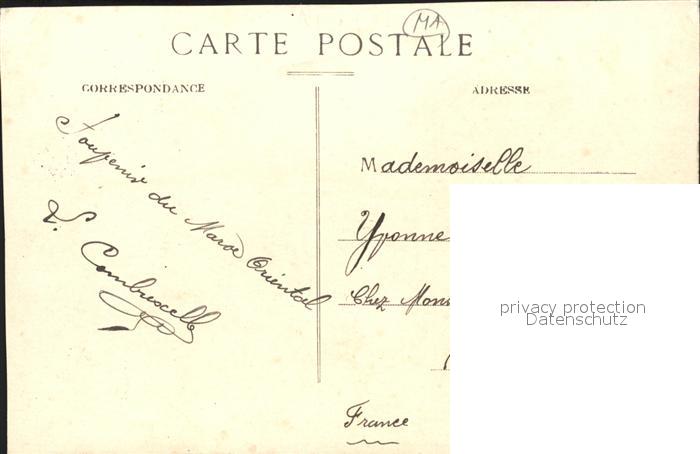 MA
CARTE POSTALE
CORRESPONDANCE
ADRESSE
Souvenir du Maroc Oriental
Combescelle
Mademoiselle
Yvonne
Chez Mons
France
privacy protection
Datenschutz